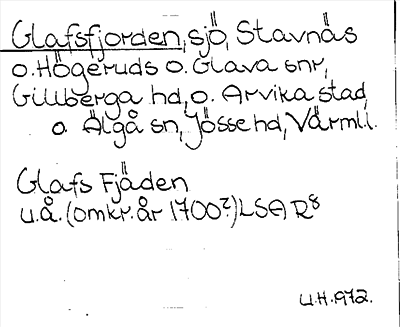 Glafsfjorden, sjö, Stavnäs
o. Högeruds o. Glava snr,
Gillberga hd, o. Arvika stad,
o. Älgå sn, Jösse hd, Värml.l.
Glafs Fjäden
u.å. (omkr. år 1700?) LSA R8
U.H. 1972.